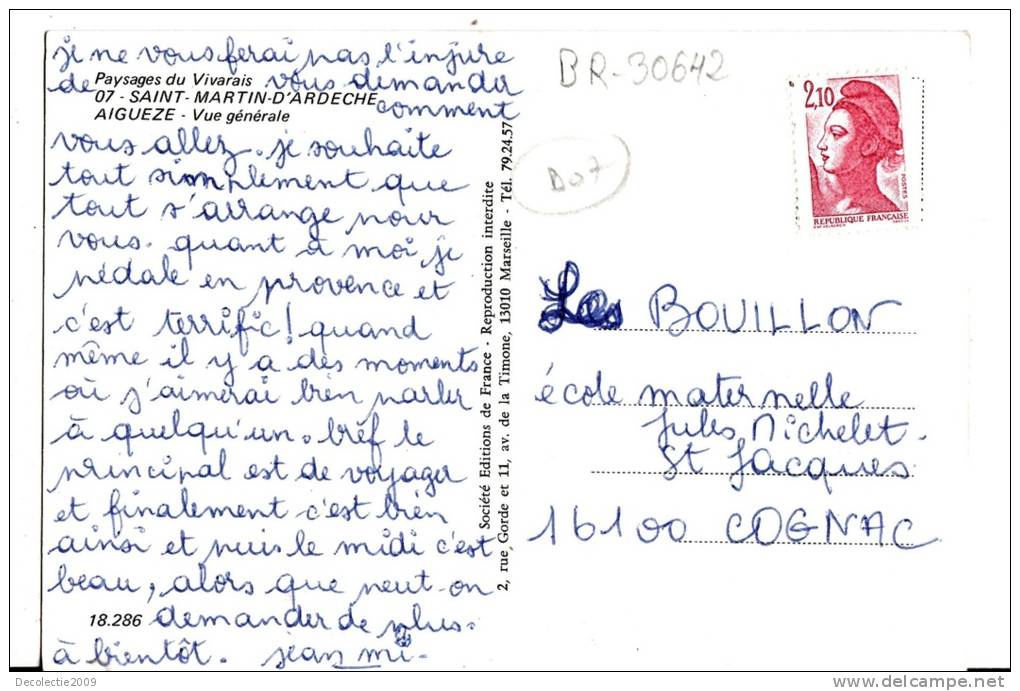 je ne vous ferai pas l'injure
de vous demander
comment
vous allez. je souhaite
tout simplement que
tout s'arrange pour
vous. quant à moi, je
pédale en provence et
c'est terrific! quand
même il y a des moments
où j'aimerai bien parler
à quelqu'un. bref le
principal est de voyager
et finalement c'est bien
ainsi et puis le midi c'est
beau, alors que peut-on
demander de plus.
à bientôt. jean mi.
Paysages du Vivarais
07 - SAINT-MARTIN-D'ARDECHE
AIGUEZE - Vue générale
18.286
Société Editions de France - Reproduction interdite
2, rue Gorde et 11, av. de la Timone, 13010 Marseille - Tél. 79.24.57
BR-30642
D07
2,10
POSTES
REPUBLIQUE FRANÇAISE
Les BOUILLON
école maternelle
Jules Michelet.
St Jacques
16100 COGNAC
Decolectie2009
www.delcampe.net